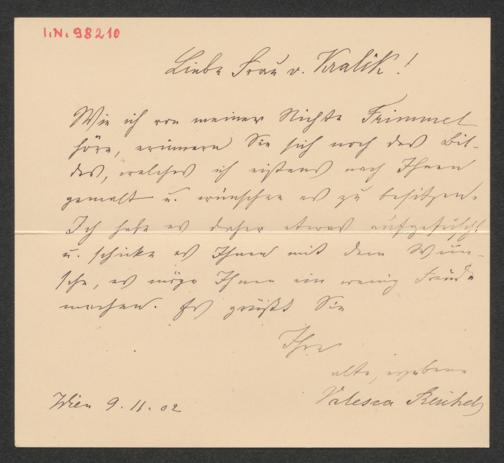 I.N. 98210
Liebe Frau v. Kralik!
Wie ich von meiner Nichte Frimmel
höre, erinnern Sie sich noch des Bil-
des, welches ich einstens nach Ihnen
gemalt u. wünschen es zu besitzen.
Ich habe es daher etwas aufgefrischt
u. schicke es Ihnen mit dem Wun-
sche, es möge Ihnen ein wenig Freude
machen. Es grüßt Sie
Ihre
alte, ergebene
Valesca
Wien 9. 11. 02